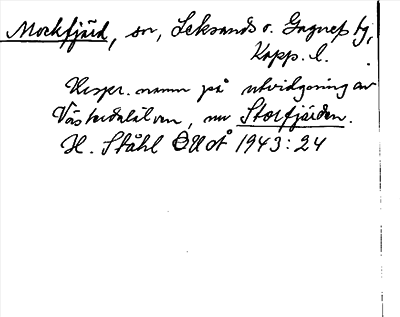 Mockfjärd, sn, Leksands o. Gagnefs tg,
Kopp. l.
Urspr. namn på utvidgning av
Västerdalälven, nu Storfjärden.
H. Ståhl OUoÅ 1943:24